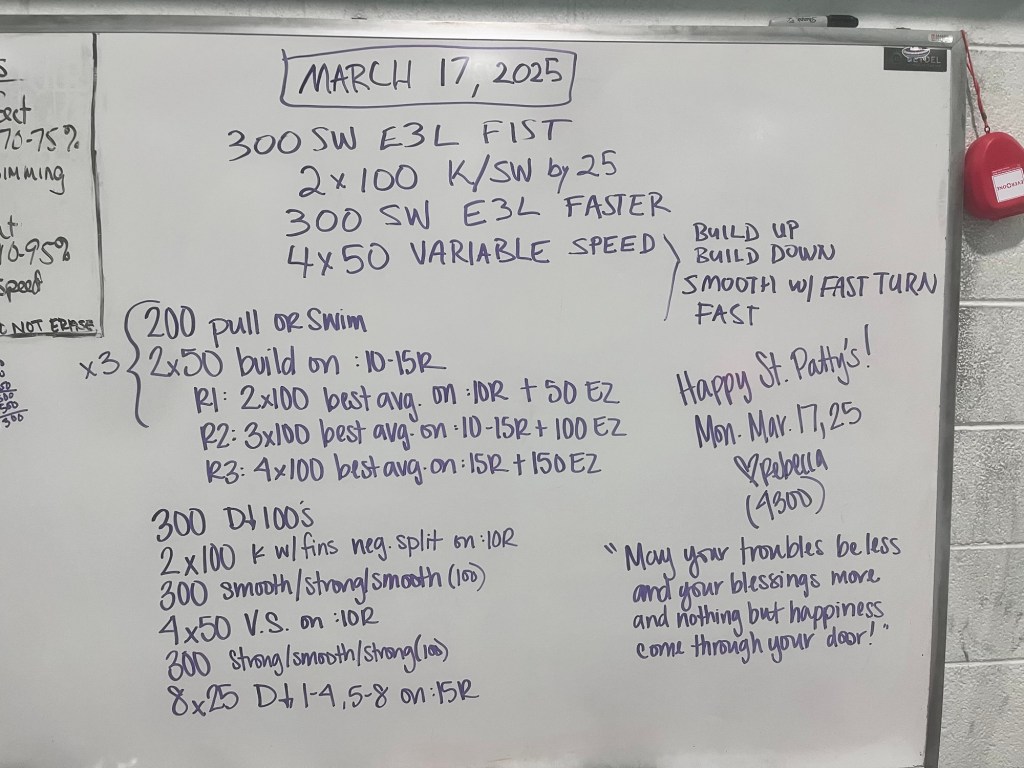 MARCH 17, 2025
300 SW E3L FIST
2x100 K/SW by 25
300 SW E3L FASTER
4x50 VARIABLE SPEED
BUILD UP
BUILD DOWN
SMOOTH W/ FAST TURN
FAST
x3
200 pull OR Swim
2x50 build on :10-15R
R1: 2x100 best avg. on :10R + 50 EZ
R2: 3x100 best avg. on :10-15R + 100 EZ
R3: 4x100 best avg. on :15R + 150 EZ
300 D↓ 100's
2x100 K w/ fins neg. split on :10R
300 smooth/strong/smooth (100)
4x50 V.S. on :10R
300 strong/smooth/strong (100)
8x25 D↓ 1-4, 5-8 on :15R
Happy St. Patty's!
Mon. Mar. 17, 25
♡ Rebecca
(4300)
"May your troubles be less
and your blessings more
and nothing but happiness
come through your door!"
70-75%
speed
NOT ERASE